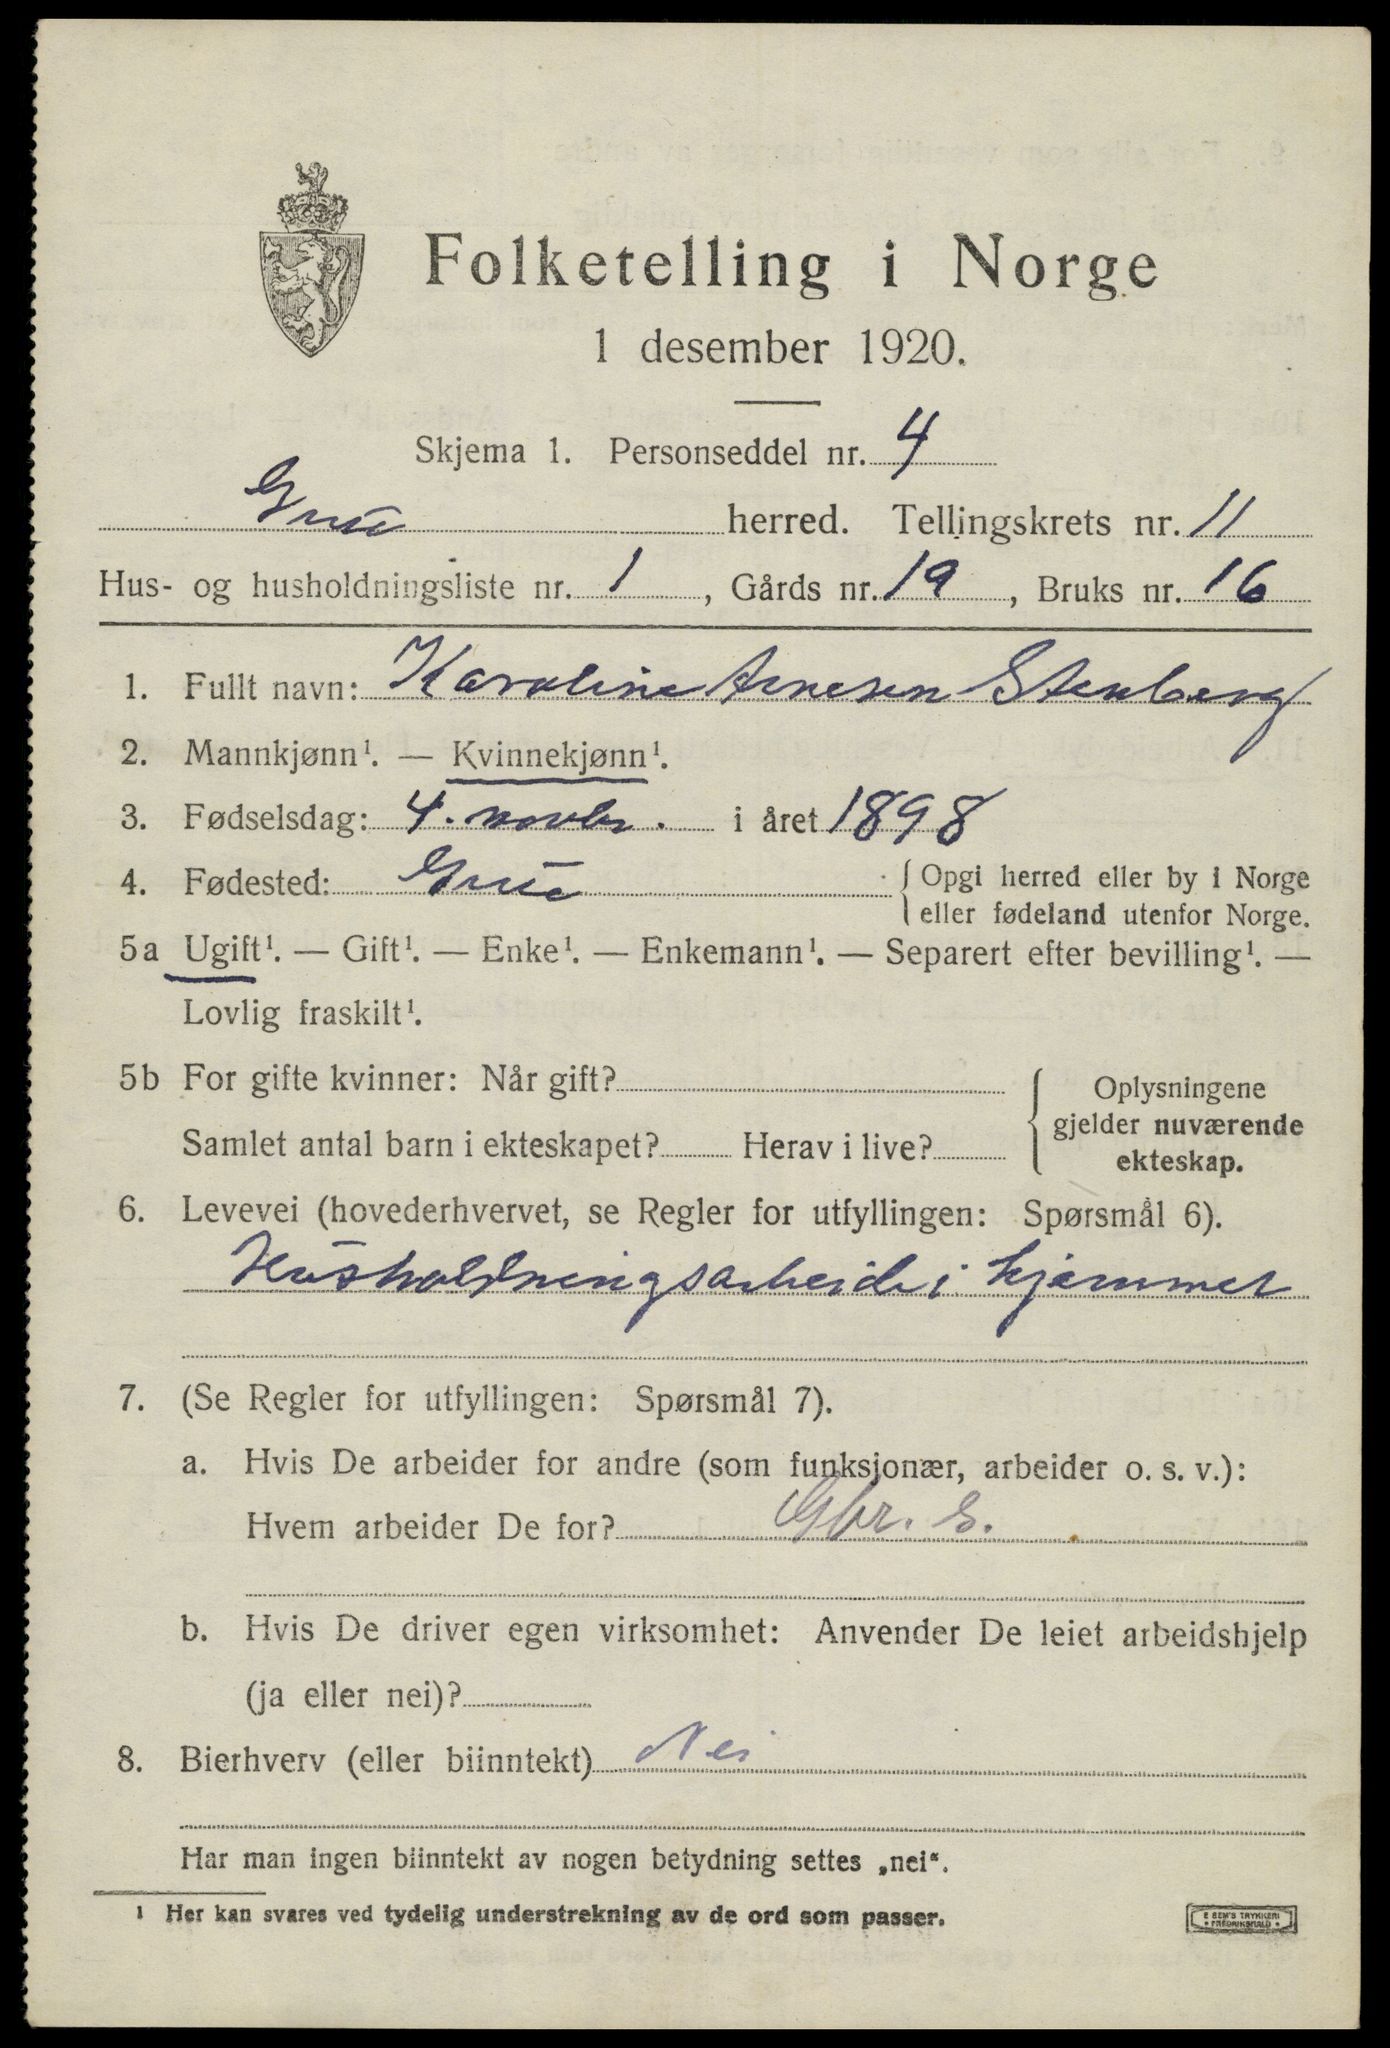 Folketelling i Norge
1 desember 1920.
Skjema 1. Personseddel nr. 4
Grue herred. Tellingskrets nr. 11
Hus- og husholdningsliste nr. 1, Gårds nr. 19, Bruks nr. 16
1. Fullt navn: Karoline Arnesen Stenberg
2. Mannkjønn¹. — Kvinnekjønn¹.
3. Fødselsdag: 4. novbr. i året 1898
4. Fødested: Grue { Opgi herred eller by i Norge
eller fødeland utenfor Norge.
5a Ugift¹. — Gift¹. — Enke¹. — Enkemann¹. — Separert efter bevilling¹. —
Lovlig fraskilt¹.
5b For gifte kvinner: Når gift?
Samlet antal barn i ekteskapet? Herav i live?
{ Oplysningene
gjelder nuværende
ekteskap.
6. Levevei (hovederhvervet, se Regler for utfyllingen: Spørsmål 6).
Husholdningsarbeide i hjemmet
7. (Se Regler for utfyllingen: Spørsmål 7).
a. Hvis De arbeider for andre (som funksjonær, arbeider o. s. v.):
Hvem arbeider De for? Gbr. S.
b. Hvis De driver egen virksomhet: Anvender De leiet arbeidshjelp
(ja eller nei)?
8. Bierhverv (eller biinntekt) Nei
Har man ingen biinntekt av nogen betydning settes „nei“.
1 Her kan svares ved tydelig understrekning av de ord som passer.
E SEM'S TRYKKERI
• FREDRIKSHALD •